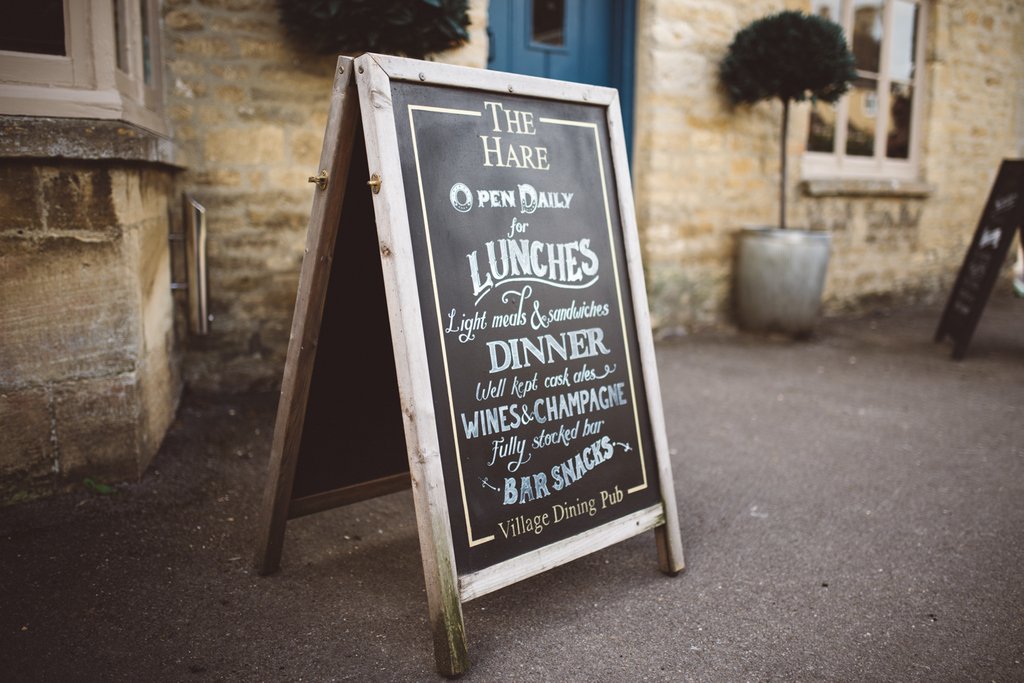 THE
HARE
OPEN DAILY
for
LUNCHES
Light meals & sandwiches
DINNER
Well kept cask ales
WINES & CHAMPAGNE
Fully stocked bar
BAR SNACKS
Village Dining Pub